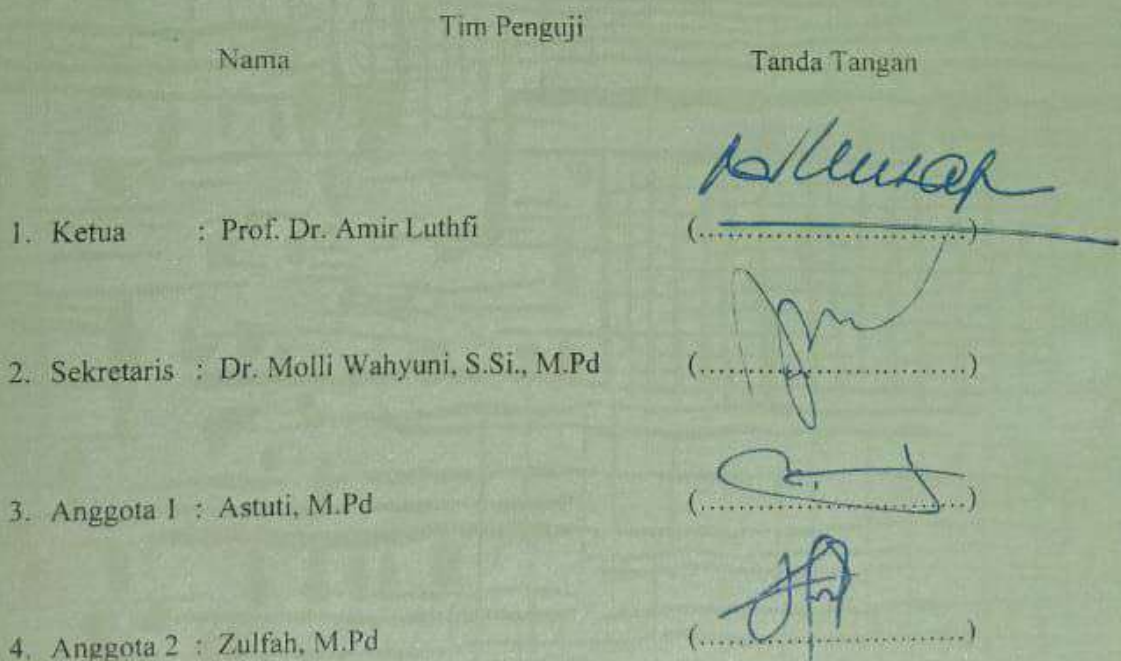 Tim Penguji
Nama Tanda Tangan
1. Ketua : Prof. Dr. Amir Luthfi (..............................)
2. Sekretaris : Dr. Molli Wahyuni, S.Si., M.Pd (..............................)
3. Anggota 1 : Astuti, M.Pd (..............................)
4. Anggota 2 : Zulfah, M.Pd (..............................)